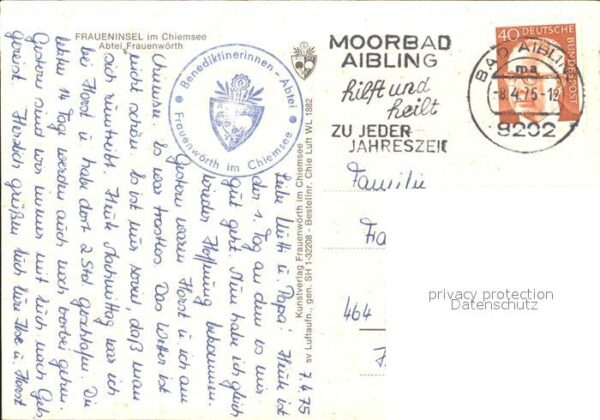 FRAUENINSEL im Chiemsee
Abtei Frauenwörth
Benediktinerinnen - Abtei
Frauenwörth im Chiemsee
Kunstverlag Frauenwörth im Chiemsee
sv Luftaufn., gen. SH 1-32208 - Bestellnr. Chie Luft WL 1882
MOORBAD
AIBLING
hilft und
heilt
ZU JEDER
JAHRESZEIT
BAD AIBLING
ma
-8.4.75-12
8202
40 DEUTSCHE
BUNDESPOST
7.4.75
Liebe Mutti u. Papa! Heute ist
der 1. Tag an dem es mir
gut geht. Nun habe ich gleich
wieder Hoffnung bekommen.
Gestern waren Horst u. ich am
Chiemsee. Es war trostlos. Das Wetter ist
nicht schön. Es ist nur soviel, daß man
sich rumtreibt. Heute Nachmittag war ich
bei Horst u. habe dort 2 Std. geschlafen. Die
letzten 14 Tag werden auch noch vorbei gehen.
Gestern sind wir immer mit Euch nach
gereist. Herzlich grüßen Euch Eure Ilse u. Horst
Familie
Fa
464
privacy protection
Datenschutz